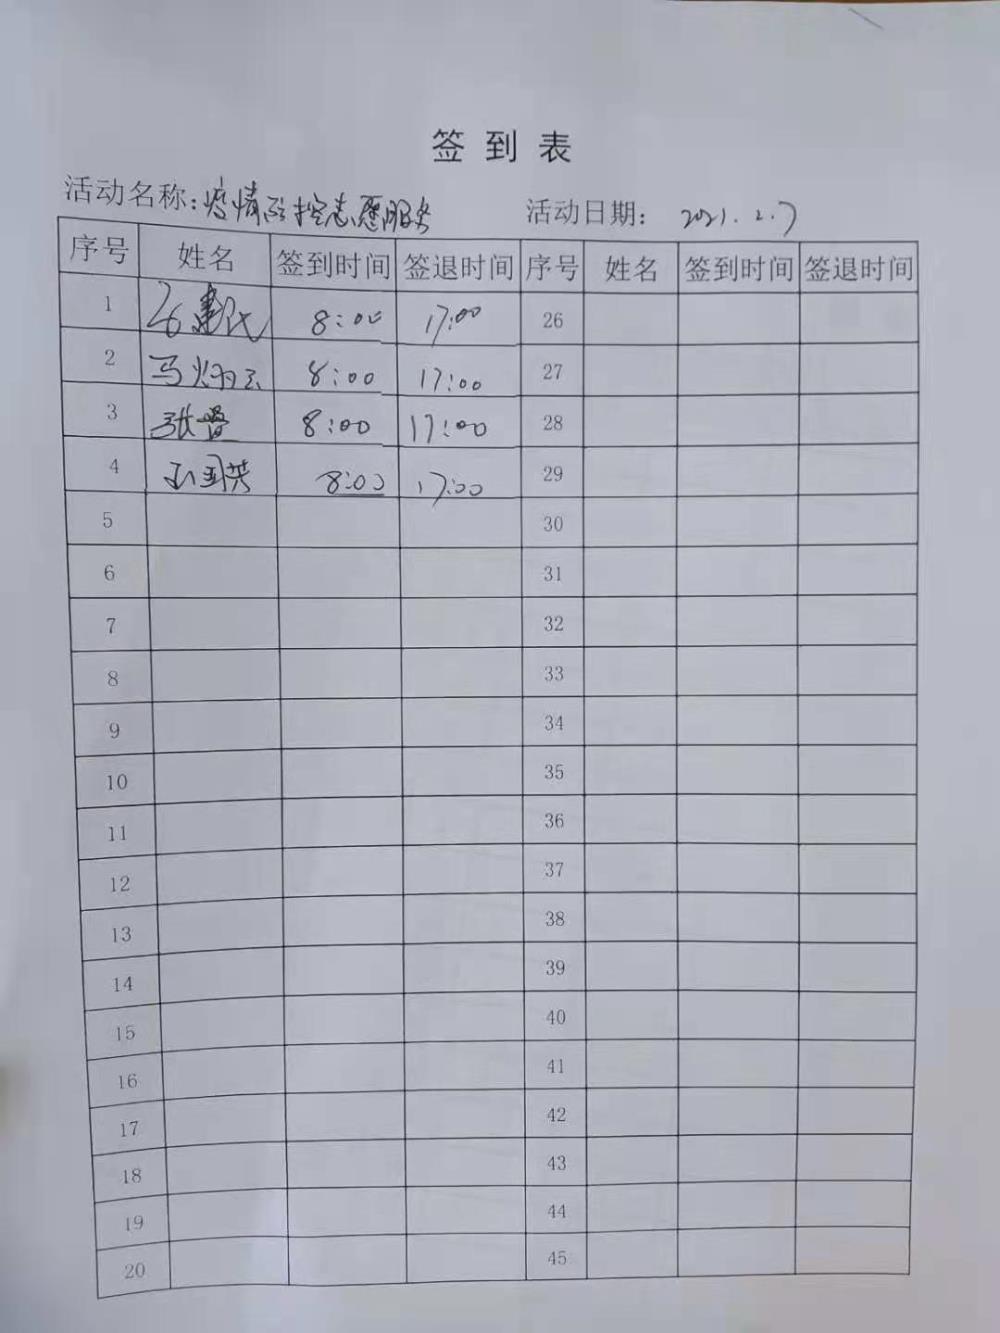 签到表
活动名称：疫情防控志愿服务 活动日期： 2021.2.7
序号 姓名 签到时间 签退时间 序号 姓名 签到时间 签退时间
1 8:00 17:00 26
2 马 8:00 17:00 27
3 张 8:00 17:00 28
4 国英 8:00 17:00 29
5 30
6 31
7 32
8 33
9 34
10 35
11 36
12 37
13 38
14 39
15 40
16 41
17 42
18 43
19 44
20 45